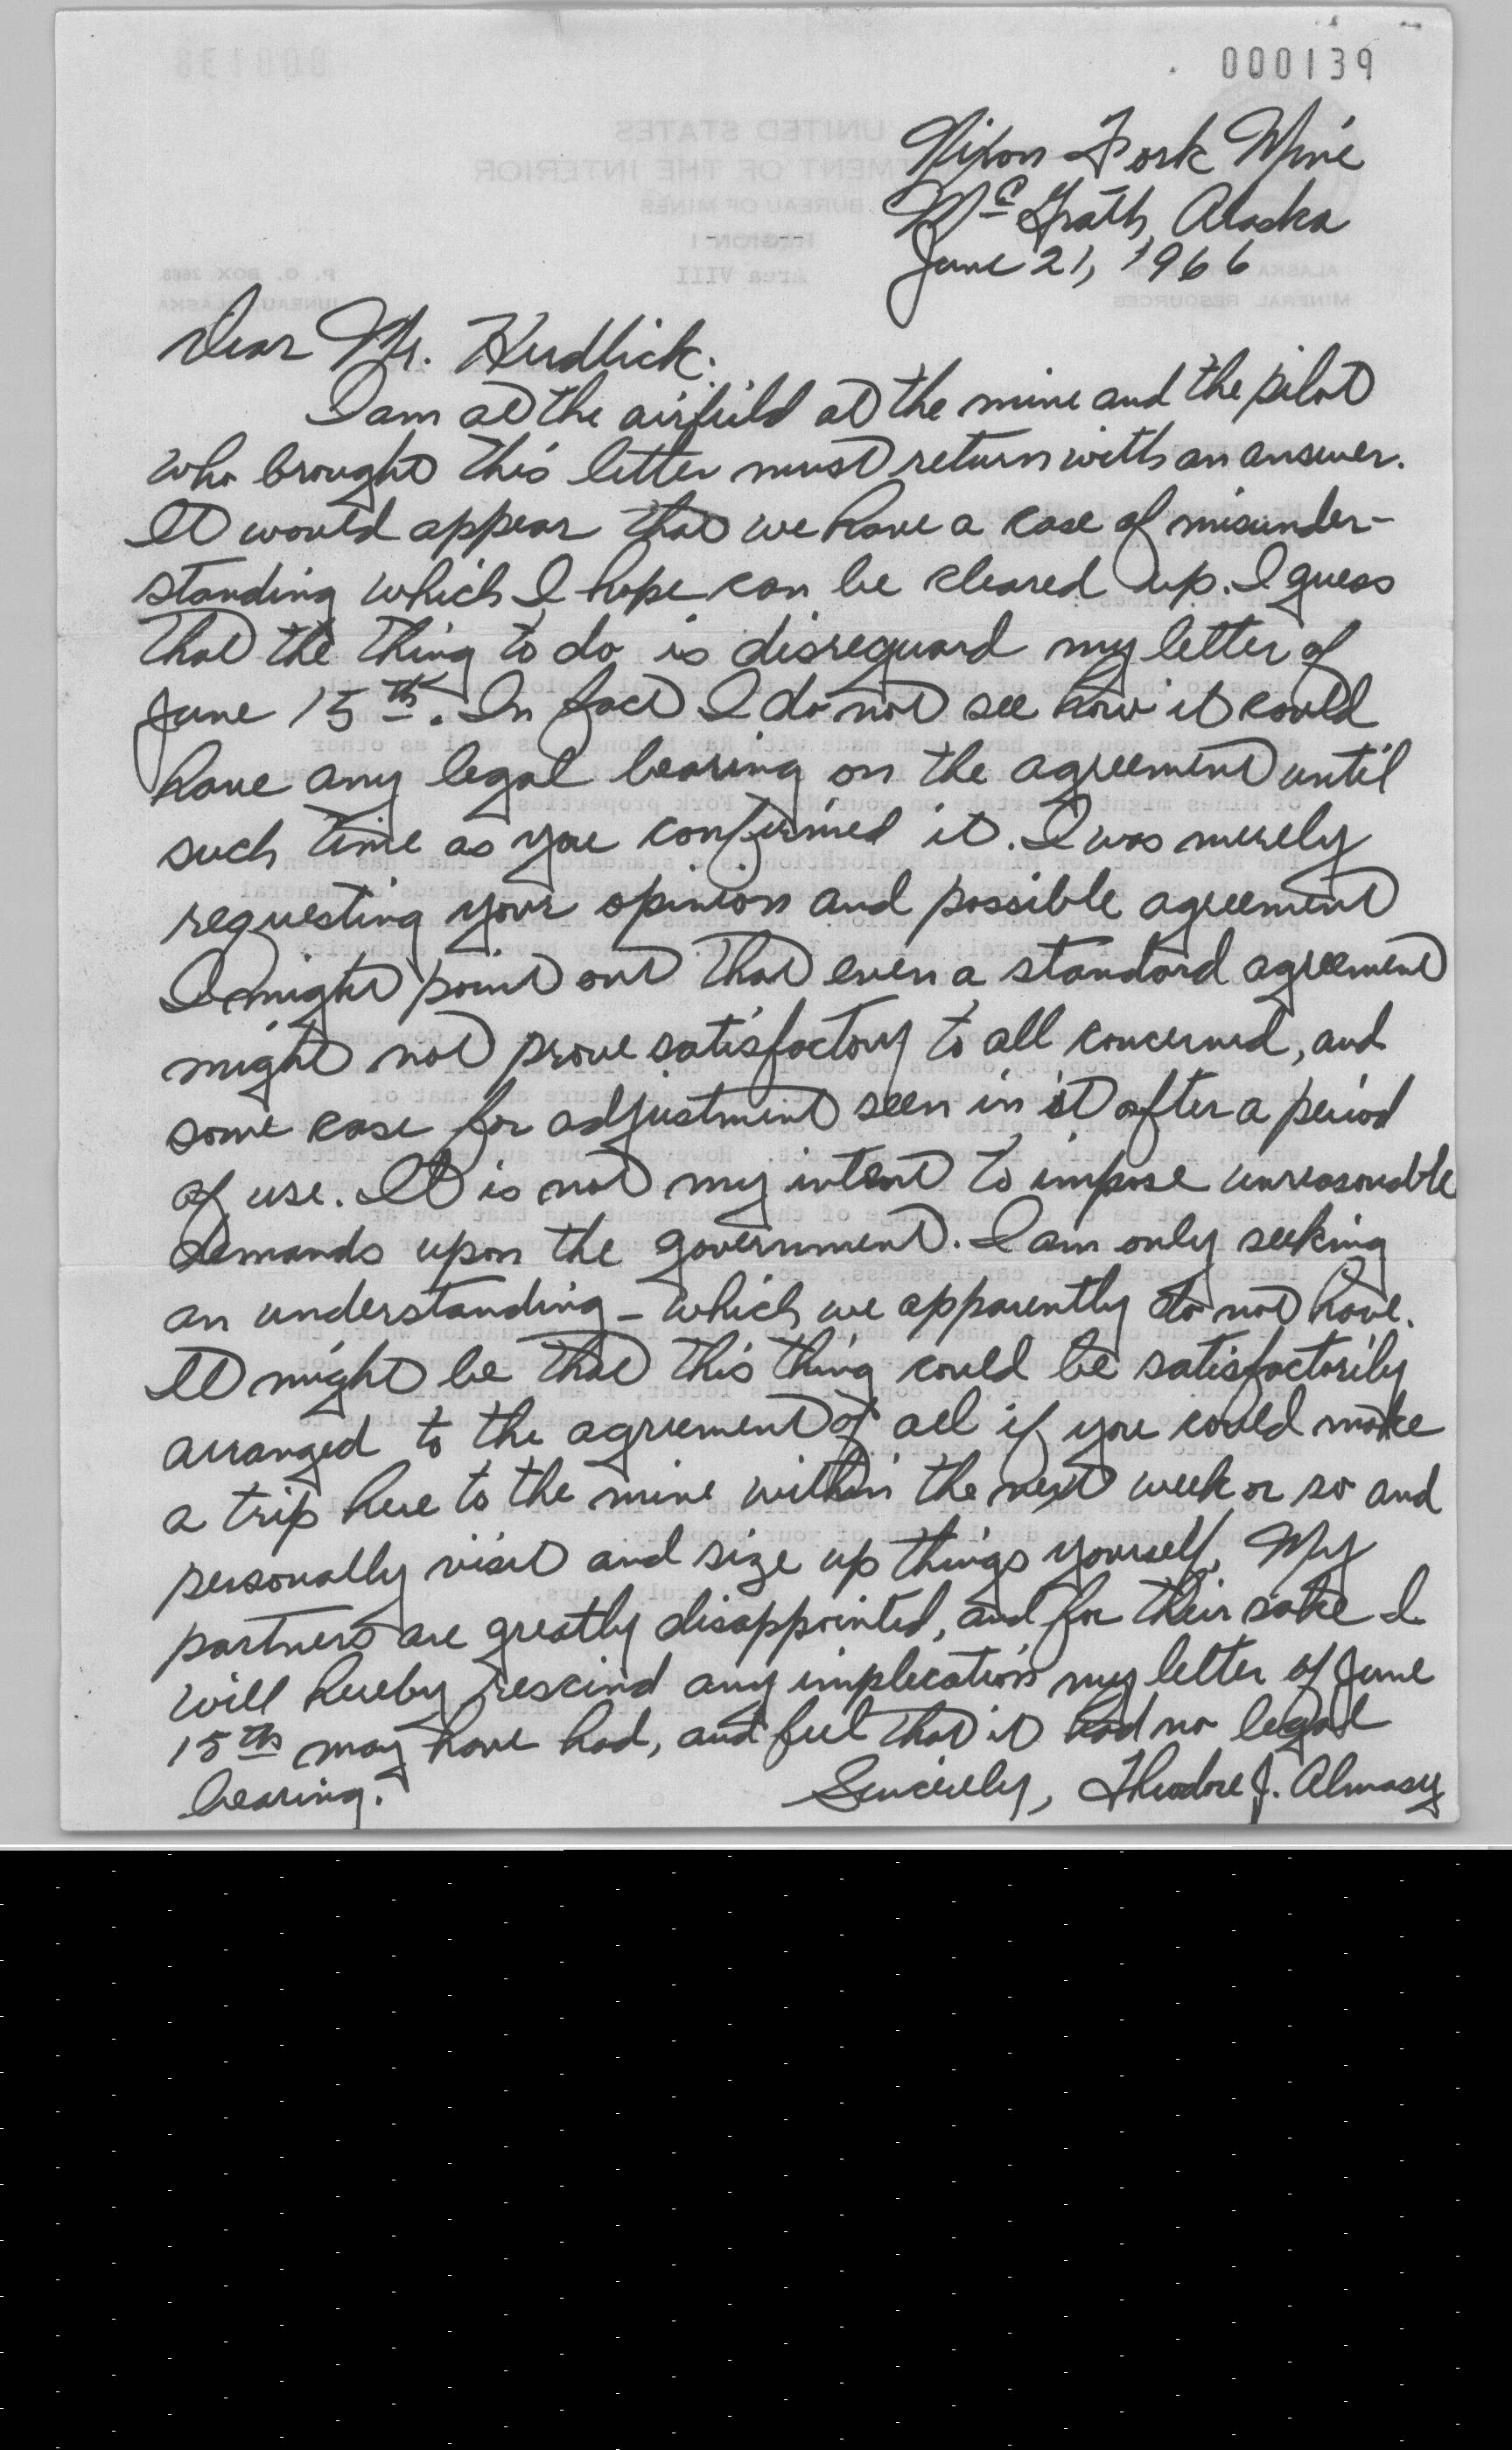 000139
Nixon Fork Mine
McGrath, Alaska
June 21, 1966
Dear Mr. Hurdlick:
I am at the airfield at the mine and the pilot
who brought this letter must return with an answer.
It would appear that we have a case of misunder-
standing which I hope can be cleared up. I guess
that the thing to do is disreguard my letter of
June 15th. In fact I do not see how it could
have any legal bearing on the agreement until
such time as you confirmed it. I was merely
requesting your opinion and possible agreement
I might point out that even a standard agreement
might not prove satisfactory to all concerned, and
some case for adjustment seen in it after a period
of use. It is not my intent to impose unreasonable
demands upon the government. I am only seeking
an understanding - which we apparently do not have.
It might be that this thing could be satisfactorily
arranged to the agreement of all if you could make
a trip here to the mine within the next week or so and
personally visit and size up things yourself. My
partners are greatly disappointed, and for their sake I
will hereby rescind any implication my letter of June
15th may have had, and feel that it had no legal
bearing.
Sincerely, Theodore J. Almasy
UNITED STATES
MENT OF THE INTERIOR
BUREAU OF MINES
REGION I
Area VIII
P. O. BOX
JUNEAU, ALASKA
MINERAL RESOURCES